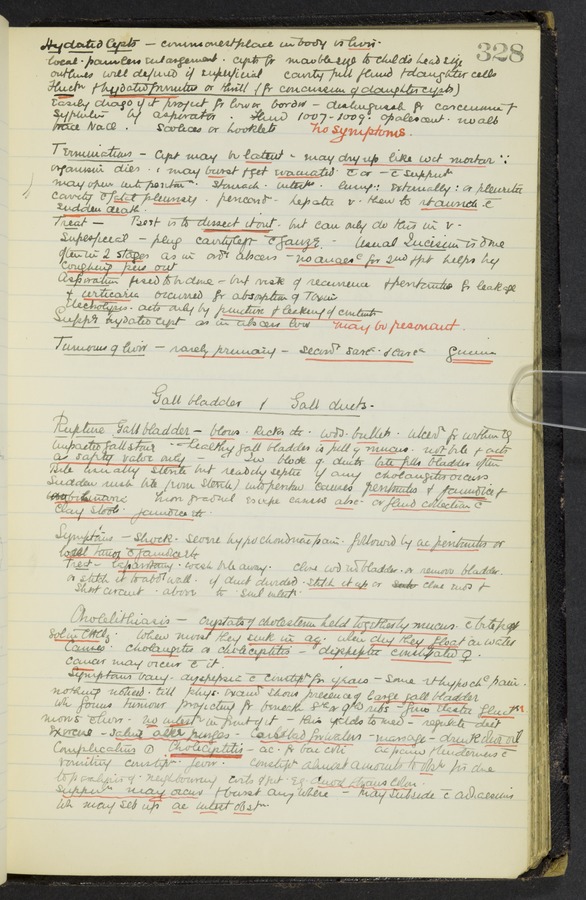 328
Hydatid Cysts — commonest place in body is liver.
local painless enlargement. cysts fr marble size to childs head size
outlines well defined if superficial cavity full fluid & daughter cells
Fluctn & hydatid fremitus or thrill (fr concussion of daughter cysts)
Easily diagd if project fr lower border — distinguish fr carcinoma &
Syphilis by aspirator. Fluid 1007-1009. opalescent. no alb
trace NaCl. Scolices or hooklets No symptoms.
Terminations — Cyst may be latent — may dry up like wet mortar ∵
organism dies. & may burst & get evacuated c̄ or — c̄ suppn
may open into . Stomach. intests. lung: Externally: or pleuritic
cavity & pleurisy. pericard. hepatic v. then to c̄
sudden death.
Treat — Best is to dissect it out. but can only do this in v.
Superficial — plug cavity left c̄ gauze. — Usual Incision is done
in 2 stages as in ordy abscess — no anaesc for 2nd ppt helps by
Coughing piece out
Aspiration used to be done — but risk of recurrence & peritonitis fr leakage
& urticaria occurred fr absorption of Toxin
Electrolysis. acts only by puncture & leaking of contents
Suppg hydatid cyst as in abscess liver may be resonant.
Tumours of liver — rarely primary — secondy sarca & carca Gumma
Gall bladder & Gall ducts.
Rupture Gall bladder — blows. kicks etc. wds. bullets. ulcerd fr within by
impacted gall stone — Healthy gall bladder is full of mucus. not bile & acts
as safety valve only In block of ducts bile fills bladder often
Bile usually sterile but readily septic if any cholangitis occurs
Sudden rush bile (even sterile) into peritoneum causes peritonitis & jaundice &
more gradual escape causes absc. or fluid collection c̄
Clay stools. jaundice etc.
Symptoms — Shock. severe hypochondriac pain. followed by ac peritonitis or
local tumor c̄ jaundice etc
Treat — Laparotomy. wash bile away. close wd in bladder. or remove bladder.
or stitch it to abd wall. if duct divided. stitch it up or close ends &
Short circuit above to small intest.
Cholelithiasis — crystals of cholesterin held together by mucus. c̄ bile pigt
Sol in CHCl3. When moist they sink in aq. when dry they float on water
Causes. cholangitis or cholecystitis — dyspeptic constipated ♀.
cancer may occur c̄ it.
Symptoms vary. dyspepsia c̄ constipn for years — Some rt hypochc pain.
nothing noticed till phys. examn shows presence of Large gall bladder
wh forms tumour projecting fr beneath 8th or 9th ribs — firm elastic fluctn
moves c̄ liver. no intestine in front of it — this yields to med — regulate diet
Exercise — saline alka purges — Carlsbad powders — massage — drink olive oil
Complications ① Cholecystitis — ac. fr bac coli ac pain & tenderness c̄
vomiting constipn. fever. constipn almost amounts to obstn prob due
to paralysis of neighbouring coils of gut. Eg duod. transv. Colon.
Suppn may occur & burst anywhere — may subside c̄ adhesions
wh may set up ac intest obstn